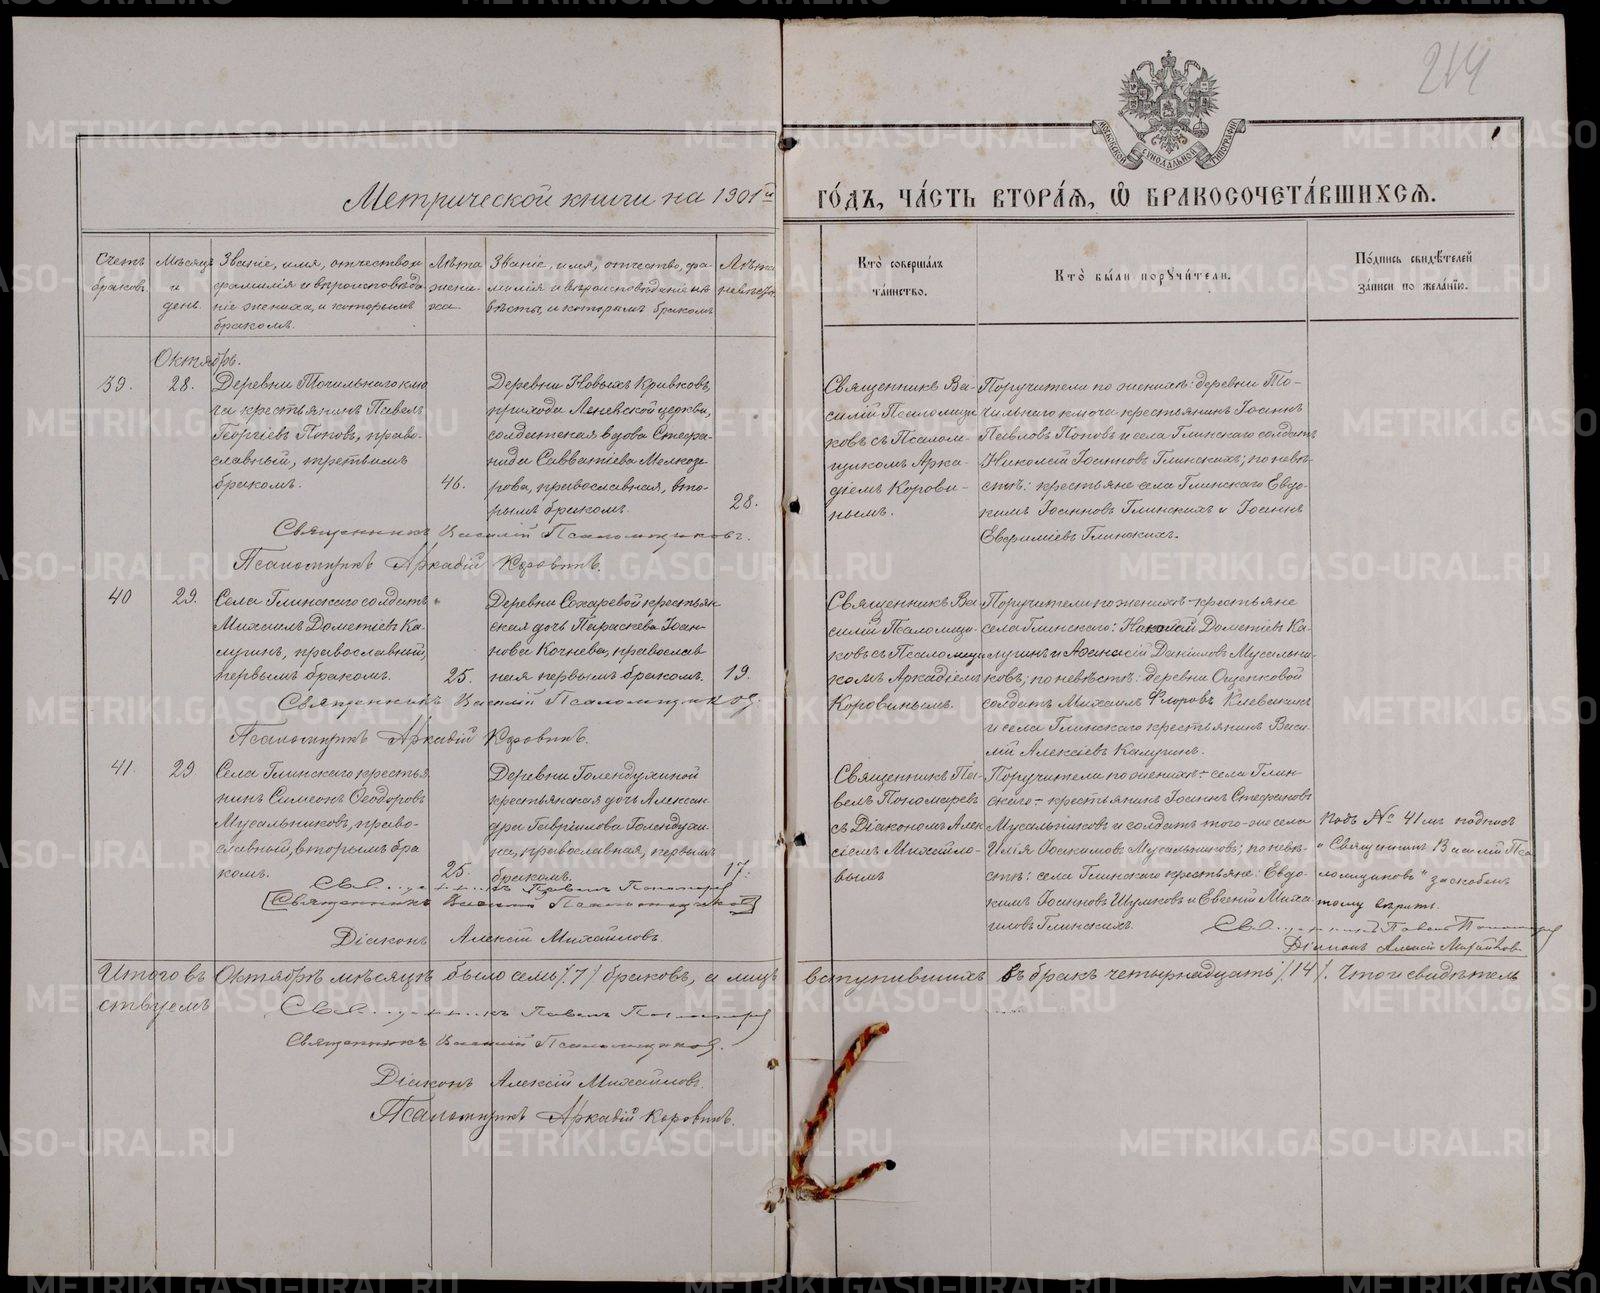 214
МОСКОВСКОЙ СУНОДАЛЬНОЙ ТИПОГРАФIИ
Метрической книги на 1901й го́дъ, ча́сть втора́ѧ, ѡ҆ бракосочета́вшихсѧ.
Счетъ
браковъ.
Мѣсяцъ
и
день.
Званіе, имя, отчество и
фамилія и вѣроисповѣда-
ніе жениха, и которымъ
бракомъ.
Лѣта
жени-
ха
Званіе, имя, отчество, фа-
милія и вѣроисповѣданіе не
вѣсты, и которымъ бракомъ
Лѣта
невѣсты.
Кто̀ соверша́лъ
та́инство.
Кто̀ бы́ли порꙋчи́тели.
По́дпись свидѣ́телей
за́писи по жела́нїю.
Октябрь.
39.
28.
Деревни Точильнаго клю
ча крестьянинъ Павелъ
Георгіевъ Поповъ, право-
славный, третьимъ
бракомъ.
46.
Деревни Новыхъ Кривковъ,
прихода Леневской церкви,
солдатская вдова Стефа-
нида Савватіева Мелкозе
рова, православная, вто-
рымъ бракомъ.
28.
Священникъ Ва-
силій Псаломщи
ковъ съ Псалом-
щикомъ Арка-
діемъ Корови-
нымъ.
Поручители по женихѣ: деревни То-
чильнаго ключа крестьянинъ Іоаннъ
Павловъ Поповъ и села Глинскаго солдатъ
Николай Іоанновъ Глинскихъ; по невѣ-
стѣ: крестьяне села Глинскаго Евдо-
кимъ Іоанновъ Глинскихъ и Іоаннъ
Евфиміевъ Глинскихъ.
Священникъ Василій Псаломщиковъ.
Псаломщикъ Аркадій Коровинъ.
40
29.
Села Глинскаго солдатъ
Михаилъ Дометіевъ Ка-
лугинъ, православный,
первымъ бракомъ.
25.
Деревни Сохаревой крестьян
ская дочь Параскева Іоан-
нова Кочнева, православ
ная первымъ бракомъ.
19.
Священникъ Ва
силій Псаломщи-
ковъ съ Псаломщи
комъ Аркадіемъ
Коровинымъ.
Поручители по женихѣ - крестьяне
села Глинскаго: Николай Дометіевъ Ка-
лугинъ и Аѳанасій Даніиловъ Мусальни-
ковъ; по невѣстѣ: деревни Ощепковой
солдатъ Михаилъ Флоровъ Клевакинъ
и села Глинскаго крестьянинъ Васи-
лій Алексіевъ Калугинъ.
Священникъ Василій Псаломщиковъ.
Псаломщикъ Аркадій Коровинъ.
41.
29
Села Глинскаго крестья
нинъ Симеонъ Ѳеодоровъ
Мусальниковъ, право-
славный, вторымъ бра
комъ.
25.
Деревни Голендухиной
крестьянская дочь Алексан-
дра Гавріилова Голендухи-
на, православная, первымъ
бракомъ.
17.
Священникъ Па-
велъ Пономаревъ
съ Діакономъ Алек
сіемъ Михайло-
вымъ
Поручители по женихѣ - села Глин-
скаго - крестьянинъ Іоаннъ Стефановъ
Мусальниковъ и солдатъ того-же села
Илія Іоакимовъ Мусальниковъ; по невѣ-
стѣ: села Глинскаго крестьяне: Евдо-
кимъ Іоанновъ Шумковъ и Евгеній Миха
иловъ Глинскихъ.
Подъ № 41мъ подпись
"Священникъ Василій Пса
ломщиковъ" заскобленъ
тому вѣрить.
Священникъ Павелъ Пономарев
Діаконъ Алексій Михайловъ
Священникъ Павелъ Пономарев
[Священникъ Василій Псаломщиков]
Діаконъ Алексій Михайловъ.
Итого въ Октябрѣ мѣсяцѣ было семь /7/ браковъ, а лицъ вступившихъ въ бракъ четырнадцать /14/. Что и свидѣтель
ствуемъ
Священникъ Павелъ Пономарев
Священникъ Василій Псаломщиков.
Діаконъ Алексій Михайловъ.
Псаломщикъ Аркадій Коровинъ.
METRIKI.GASO-URAL.RU